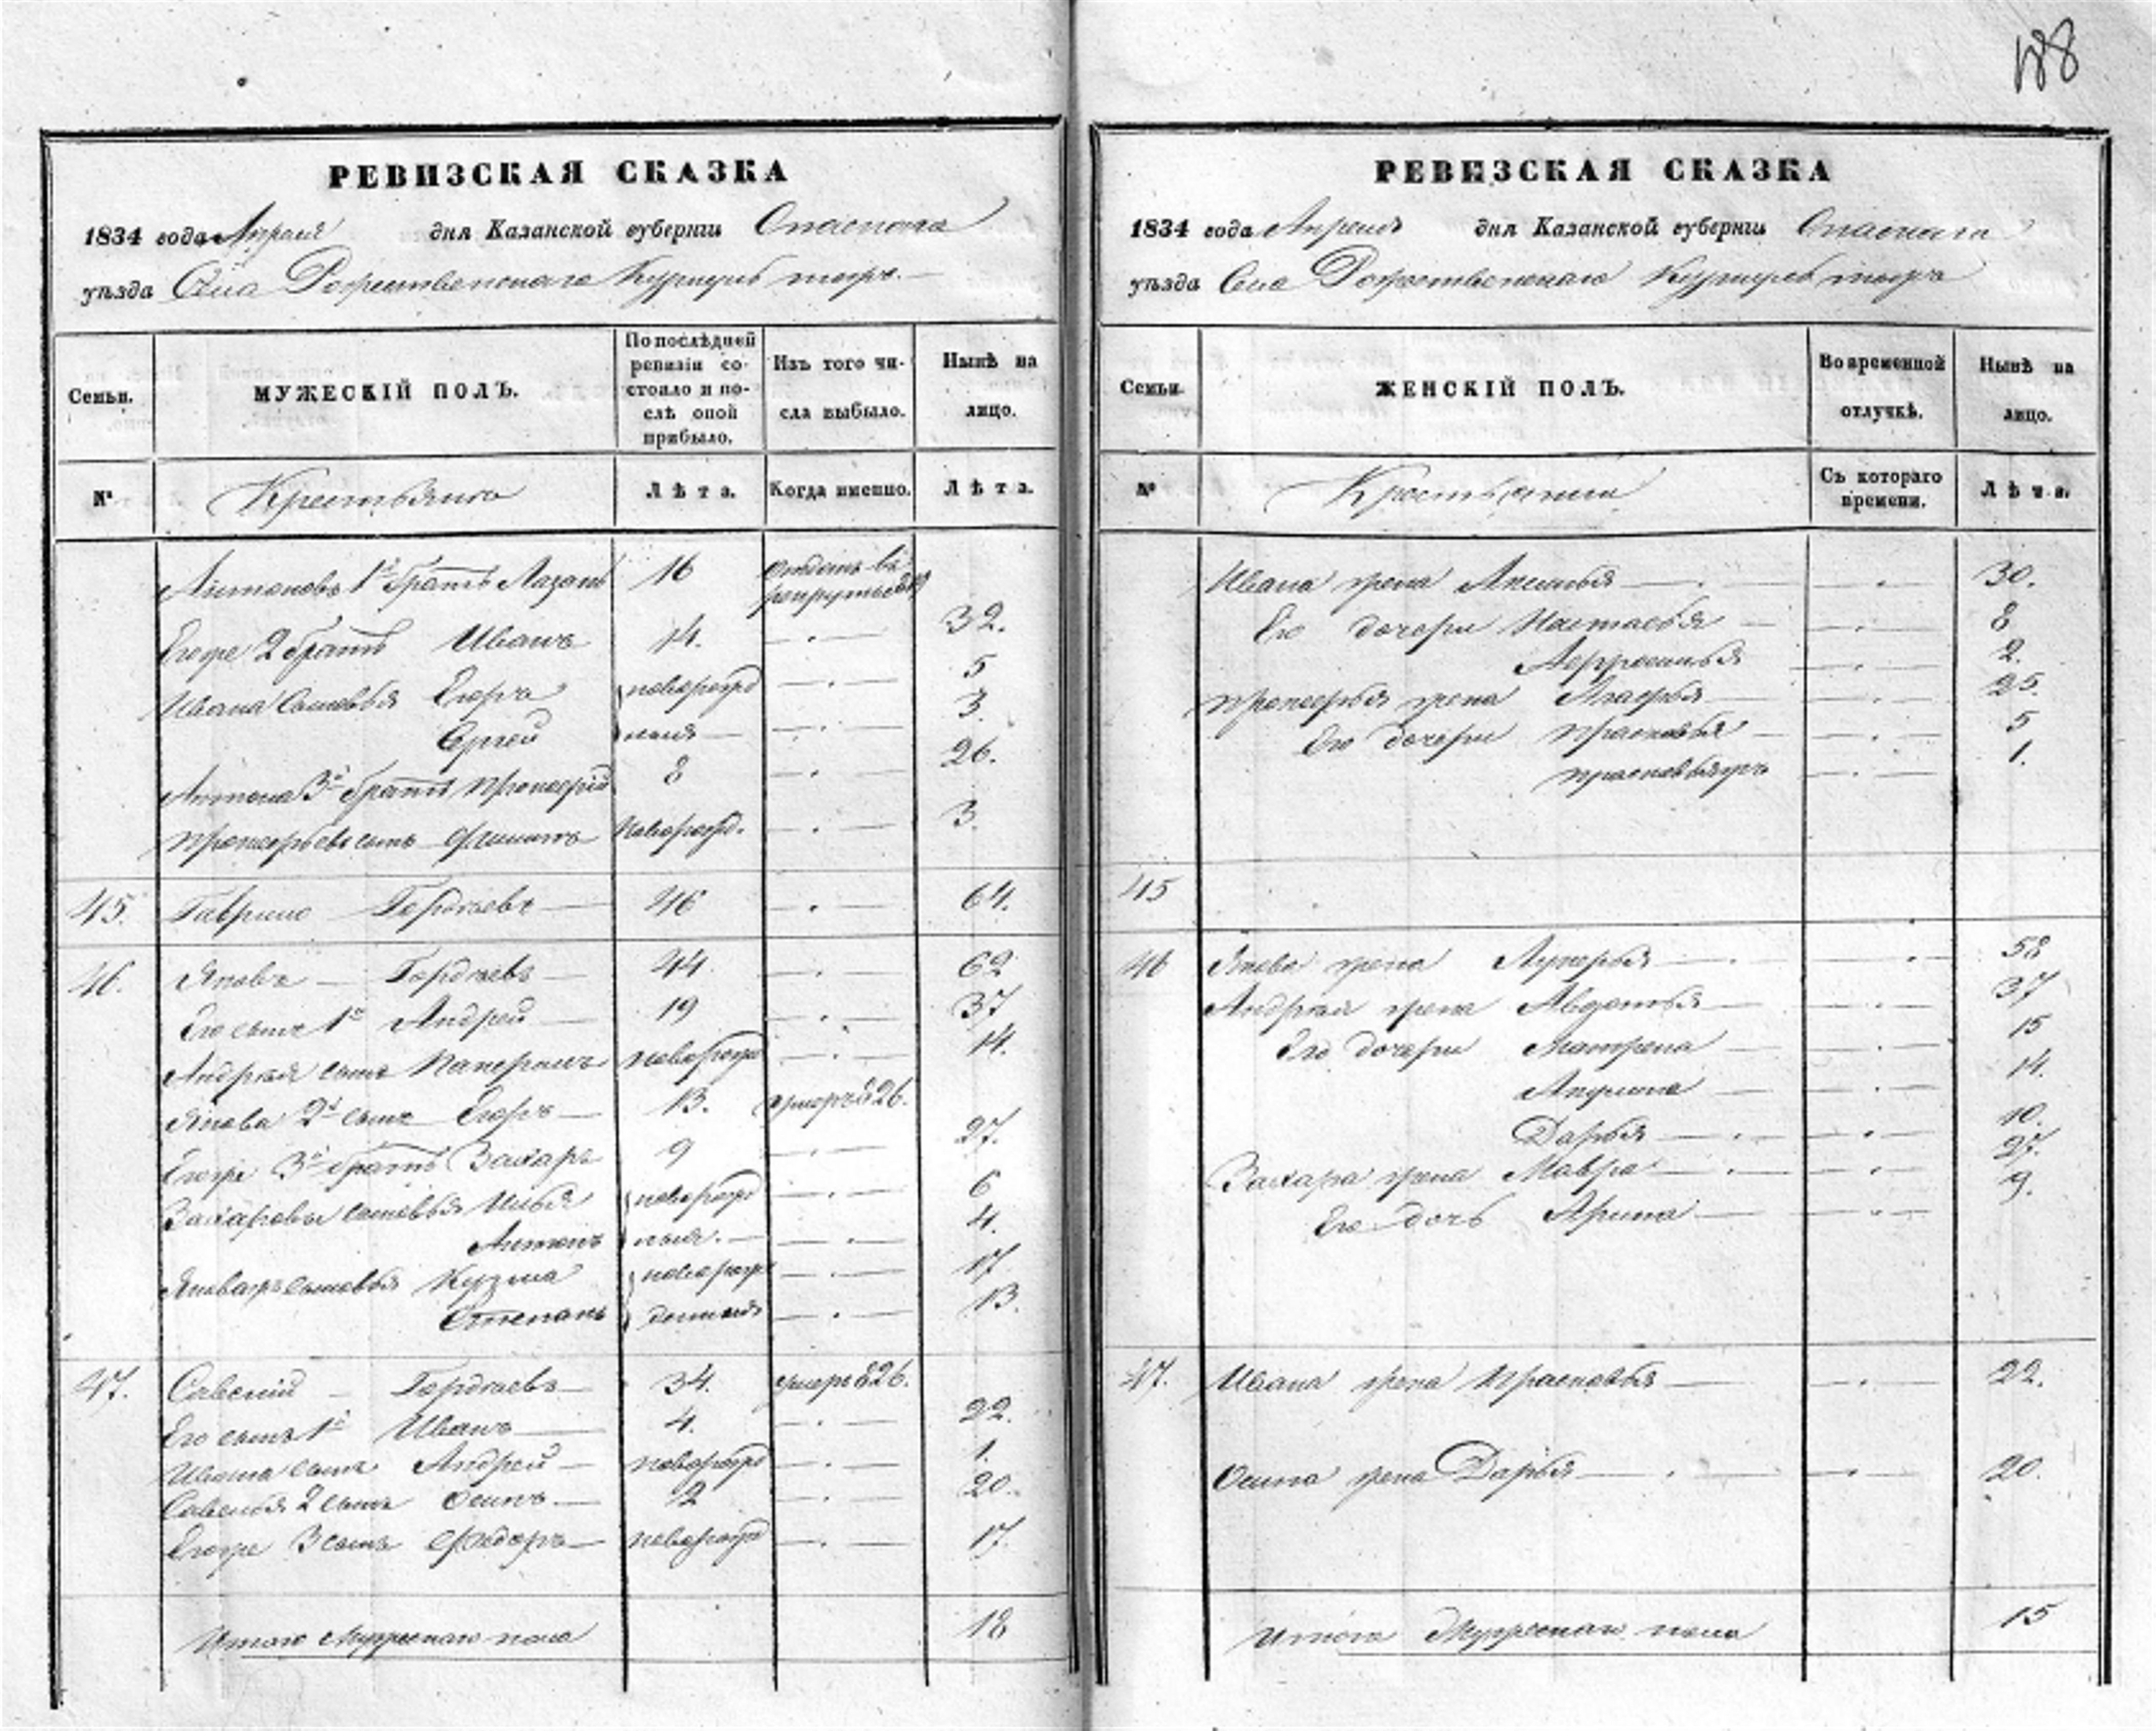 188
РЕВИЗСКАЯ СКАЗКА
1834 года Апреля дня Казанской губернiи Спаскаго
уѣзда Села Рожественскаго
Семьи. МУЖЕСКIЙ ПОЛЪ. По послѣдней ревизiи состояло и послѣ оной прибыло. Изъ того числа выбыло. Нынѣ на лицо.
№ Крестьяне Лѣта. Когда именно. Лѣта.
Антоновъ 1й братъ 16 отданъ въ рекруты
Егоже 2 братъ Иванъ 14. 32.
Ивана сыновья Егоръ новорожд 5
Сергей 3.
Антона 3й братъ Прокофiй 8 26.
Прокофьевъ сынъ Филипъ новорожд. 3.
45. Гаврило Гордѣевъ 46 64.
46. Яковъ Гордѣевъ 44 62
Его сынъ 1й Андрей 19 37
Андрея сынъ новорожд 14.
Якова 2й сынъ Егоръ 13. умеръ 826.
Егоже 3й братъ Захаръ 9 27.
Захаровы сыновья Илья новорожд 6
Антонъ 4.
сыновья Кузма новорож 17
Степанъ денныя 13.
47. Савелiй Гордѣевъ 34. умеръ 826.
Его сынъ 1й Иванъ 4. 22.
Ивана сынъ Андрей новорожд 1.
Савелья 2 сынъ Осипъ 2 20.
Егоже 3 сынъ Федоръ новорожд 17.
Итого Мужескаго пола 18
РЕВИЗСКАЯ СКАЗКА
1834 года Апреля дня Казанской губернiи Спаскаго
уѣзда Села Рожественскаго
Семьи. ЖЕНСКIЙ ПОЛЪ. Во временной отлучкѣ. Нынѣ на лицо.
№ Крестьяне Съ котораго времени. Лѣта.
Ивана жена Аксинья 30.
Его дочери Настасья 8
2.
Прокофья жена Агафья 25.
Его дочери Прасковья 5
Прасковья 1.
45
46 Якова жена Лукерья 58
Андрея жена Авдотья 37
Его дочери Матрена 15
Акулина 14.
Дарья 10.
Захара жена Мавра 27.
Его дочь Арина 9.
47. Ивана жена Прасковья 22.
Осипа жена Дарья 20.
Итого пола 15